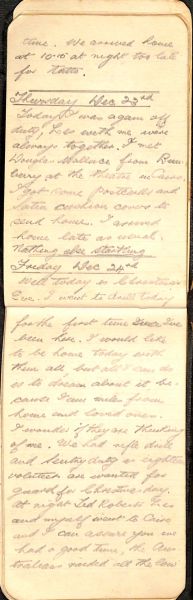 time. We arrived home
at 10.15 at night too late
for tattoo.
Thursday Dec 23rd
Today I was again off
duty, Les with me were
always together. I met
Wallace from Bun-
bury at the theatre in Cairo.
I got some postcards and
satin cushion covers to
send home. I arrived
home late as usual.
Nothing else striking
Friday Dec 24th
Well today is Christmas
Eve. I went to drill today
for the first time since I've
been here. I would like
to be home today with
them all but all I can do
is to dream about it be-
cause I am miles from
home and loved ones.
I wonder if they are thinking
of me. We had rifle drill
and sentry duty is eighteen
volunteers are wanted for
guard for Christmas day.
At night Ted Roberts Les
and myself went to Cairo
and I can assure you we
had a good time, the Aus-
tralians raided all the